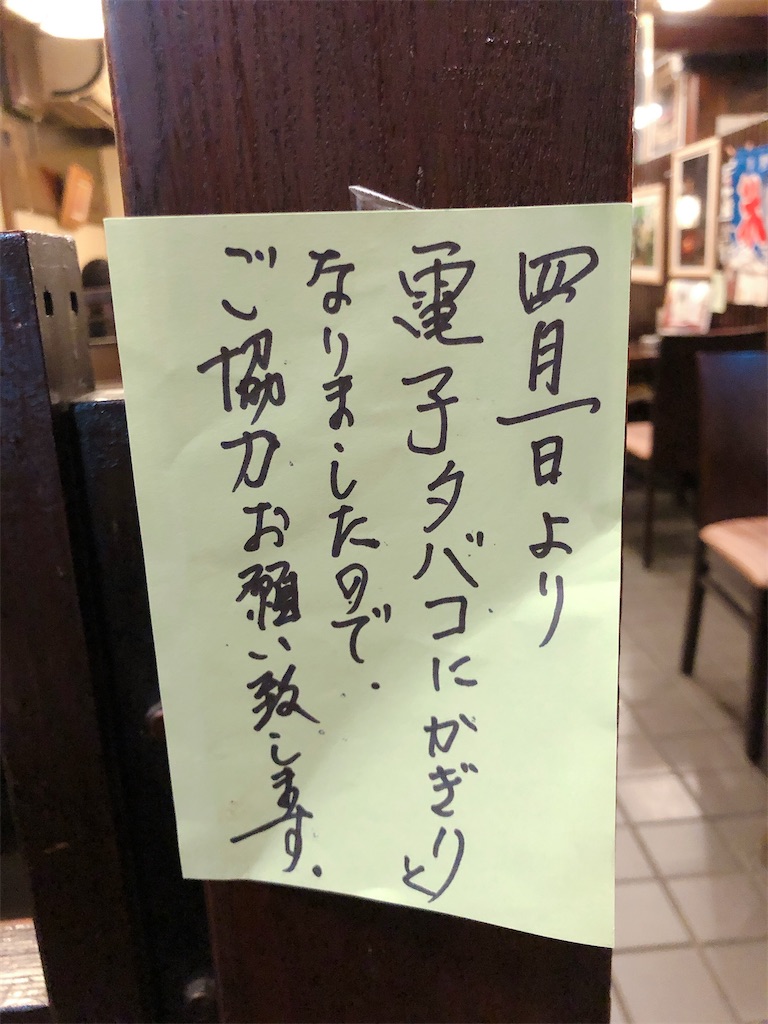 四月一日より
電子タバコにかぎりと
なりましたので.
ご協力お願い致します.